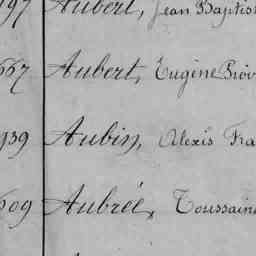 197 Aubert, Jean Baptist
667 Aubert, Eugène
939 Aubin, Alexis Fra
609 Aubrée, Toussain